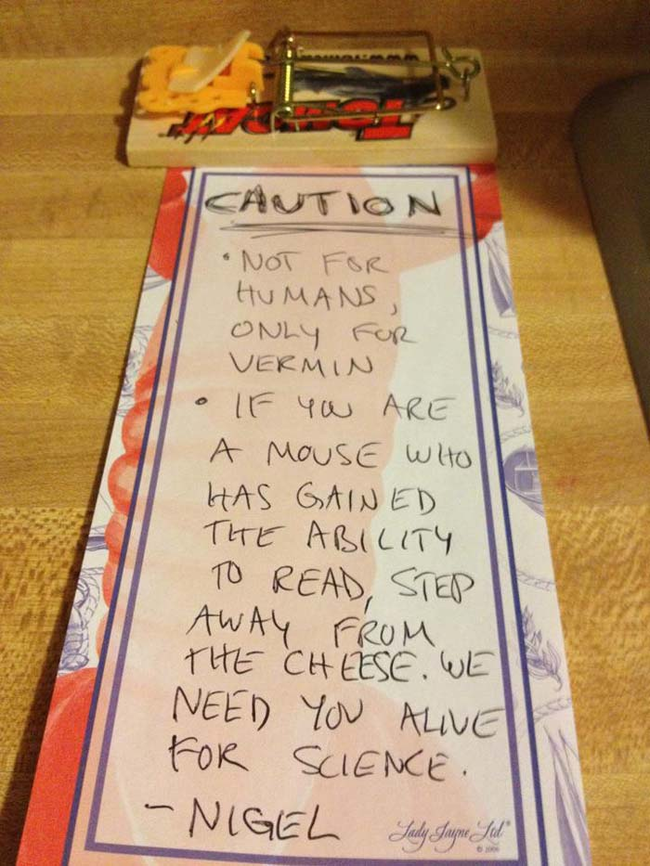 TOMCAT
CAUTION
• NOT FOR
HUMANS,
ONLY FOR
VERMIN
• IF YOU ARE
A MOUSE WHO
HAS GAINED
THE ABILITY
TO READ, STEP
AWAY FROM
THE CHEESE. WE
NEED YOU ALIVE
FOR SCIENCE.
- NIGEL
Lady Jayne Ltd®